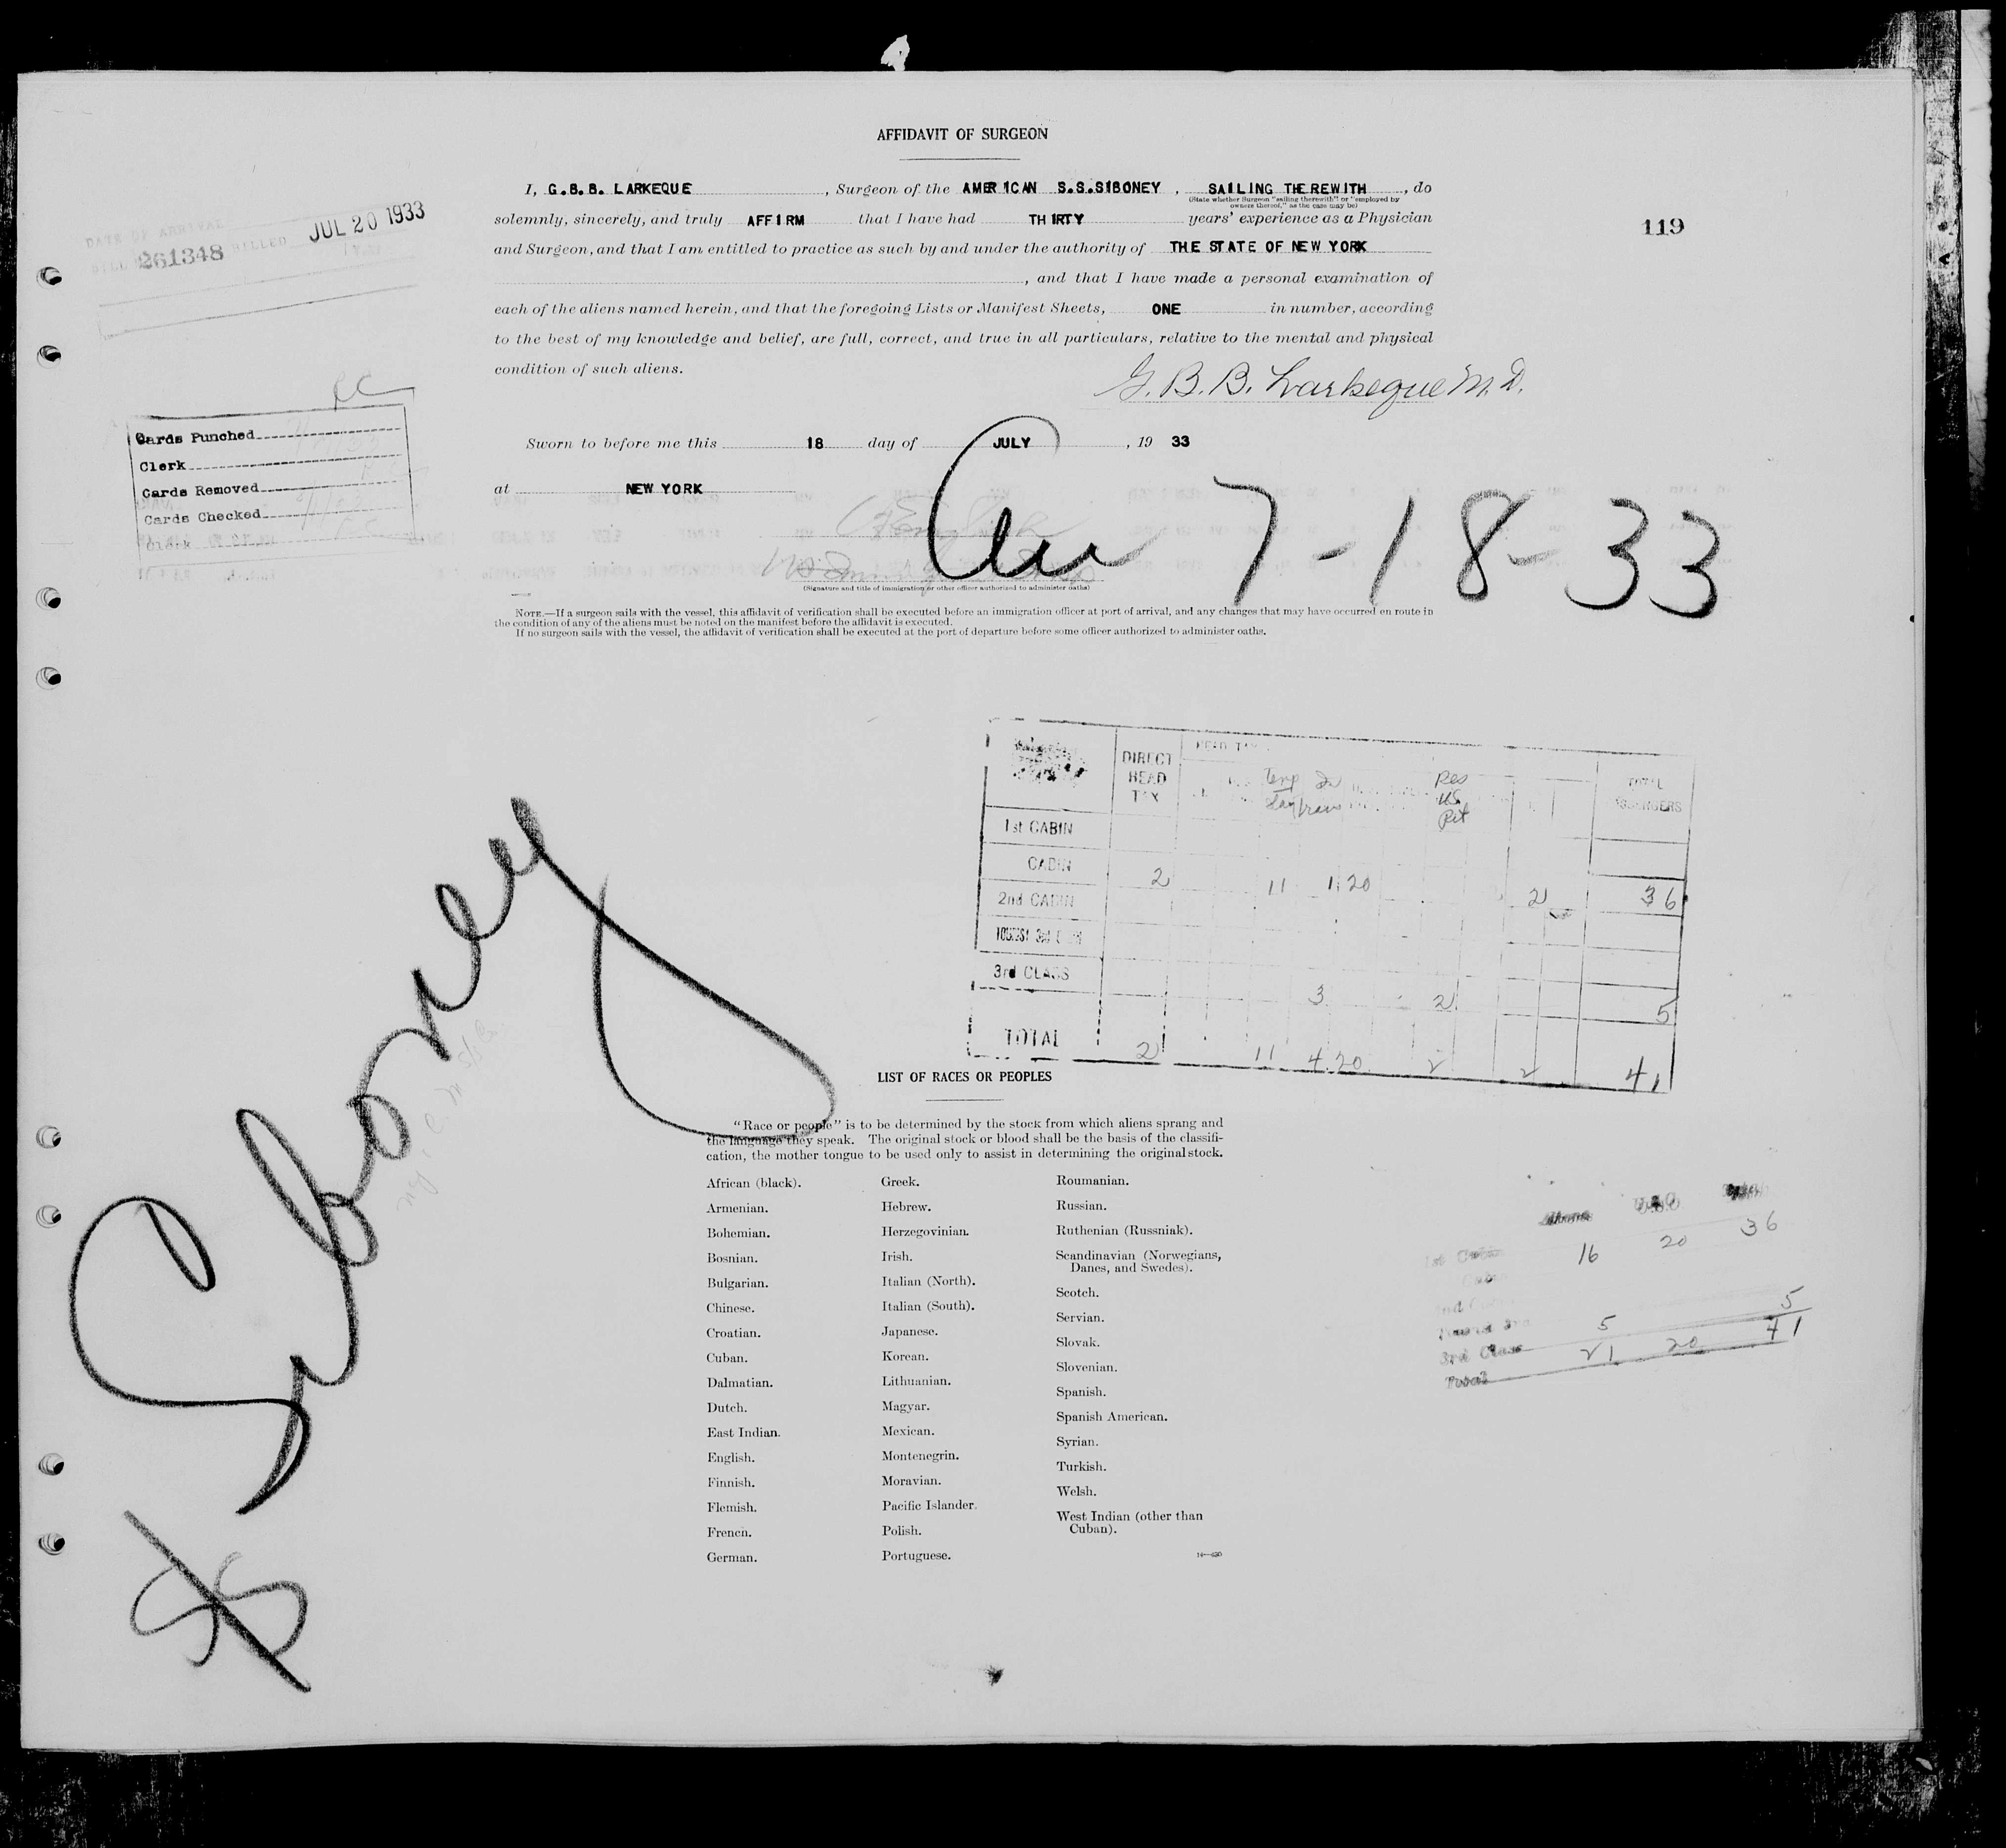 AFFIDAVIT OF SURGEON
I, G.B.B. LARKEQUE, Surgeon of the AMERICAN S.S.SIBONEY, SAILING THEREWITH, do
(State whether Surgeon "sailing therewith" or "employed by
owners thereof," as the case may be)
solemnly, sincerely, and truly AFFIRM that I have had THIRTY years' experience as a Physician
and Surgeon, and that I am entitled to practice as such by and under the authority of THE STATE OF NEW YORK
, and that I have made a personal examination of
each of the aliens named herein, and that the foregoing Lists or Manifest Sheets, ONE in number, according
to the best of my knowledge and belief, are full, correct, and true in all particulars, relative to the mental and physical
condition of such aliens.
G. B. B. Larkeque M. D.
Sworn to before me this 18 day of JULY, 19 33
at NEW YORK
(Signature and title of immigration or other officer authorized to administer oaths)
NOTE.—If a surgeon sails with the vessel, this affidavit of verification shall be executed before an immigration officer at port of arrival, and any changes that may have occurred en route in
the condition of any of the aliens must be noted on the manifest before the affidavit is executed.
If no surgeon sails with the vessel, the affidavit of verification shall be executed at the port of departure before some officer authorized to administer oaths.
119
DATE OF ARRIVAL
261348 BILLED JUL 20 1933
Cards Punched
Clerk
Cards Removed
Cards Checked
Clerk
7-18-33
SS Siboney
DIRECT HEAD TAX
HEAD TAX
Temp
Res US
TOTAL PASSENGERS
1st CABIN
CABIN 2 11 1 20 2 36
2nd CABIN
3rd CLASS 3 2 5
TOTAL 2 11 4 20 2 2 41
LIST OF RACES OR PEOPLES
"Race or people" is to be determined by the stock from which aliens sprang and
the language they speak. The original stock or blood shall be the basis of the classifi-
cation, the mother tongue to be used only to assist in determining the original stock.
African (black).
Armenian.
Bohemian.
Bosnian.
Bulgarian.
Chinese.
Croatian.
Cuban.
Dalmatian.
Dutch.
East Indian.
English.
Finnish.
Flemish.
French.
German.
Greek.
Hebrew.
Herzegovinian.
Irish.
Italian (North).
Italian (South).
Japanese.
Korean.
Lithuanian.
Magyar.
Mexican.
Montenegrin.
Moravian.
Pacific Islander.
Polish.
Portuguese.
Roumanian.
Russian.
Ruthenian (Russniak).
Scandinavian (Norwegians,
Danes, and Swedes).
Scotch.
Servian.
Slovak.
Slovenian.
Spanish.
Spanish American.
Syrian.
Turkish.
Welsh.
West Indian (other than
Cuban).
16 20 36
5 5
3rd Class 21 20 41
Total